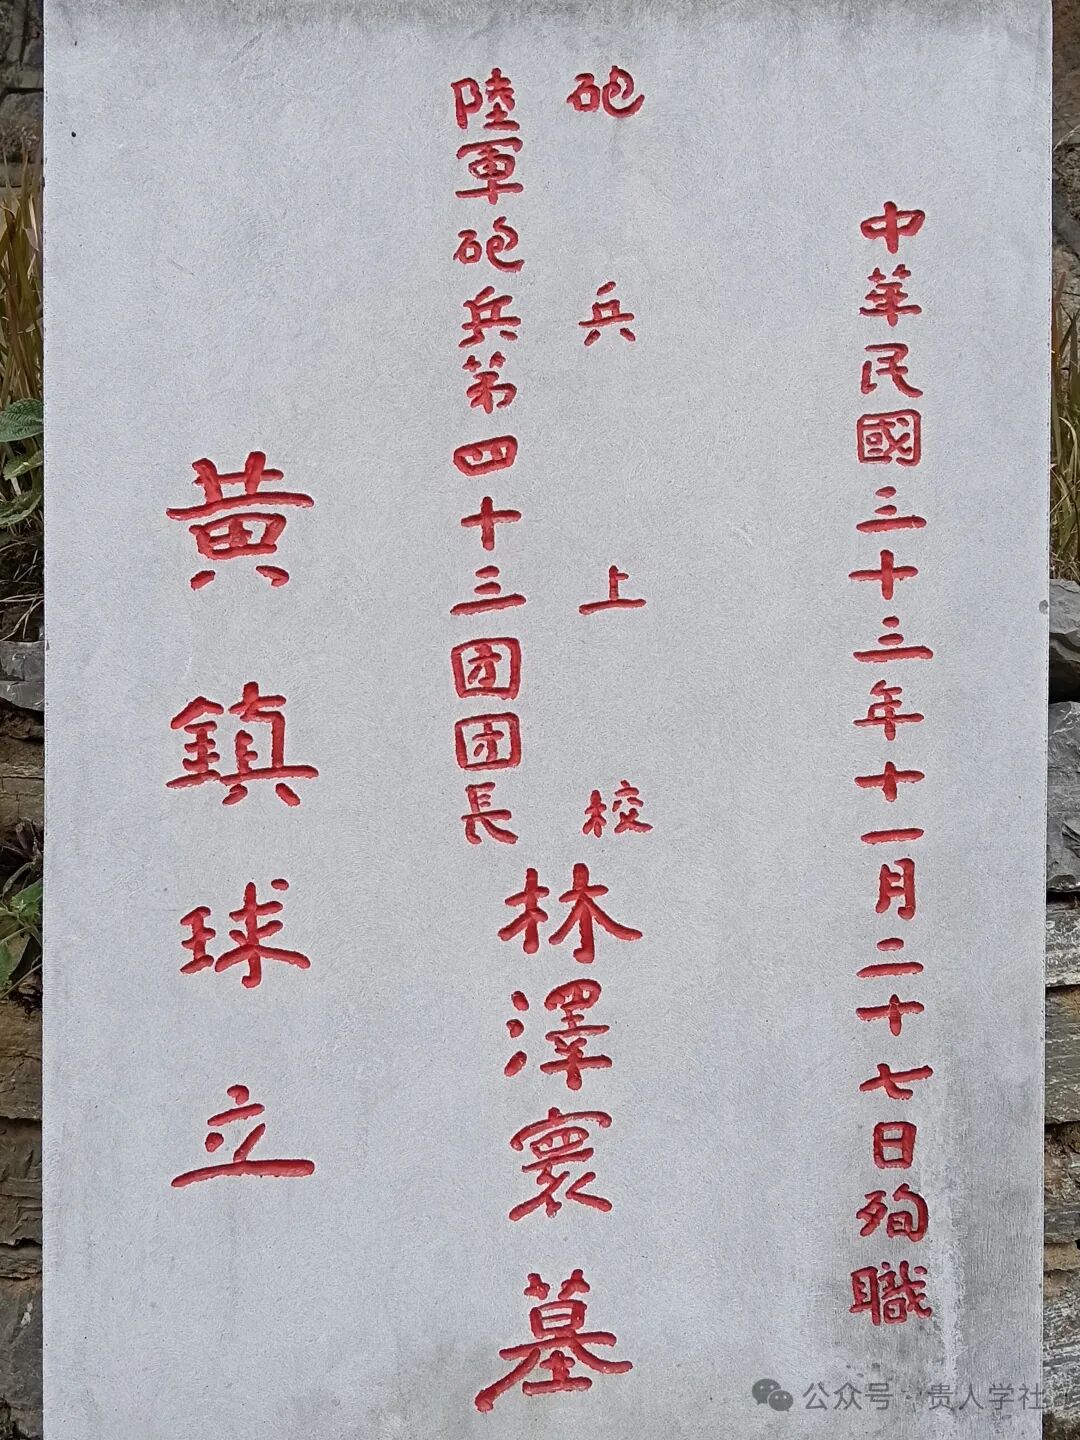 中華民國三十三年十一月二十七日殉職
砲兵上校
陸軍砲兵第四十三团团長
林澤寰墓
黄鎮球立
公众号·贵人学社